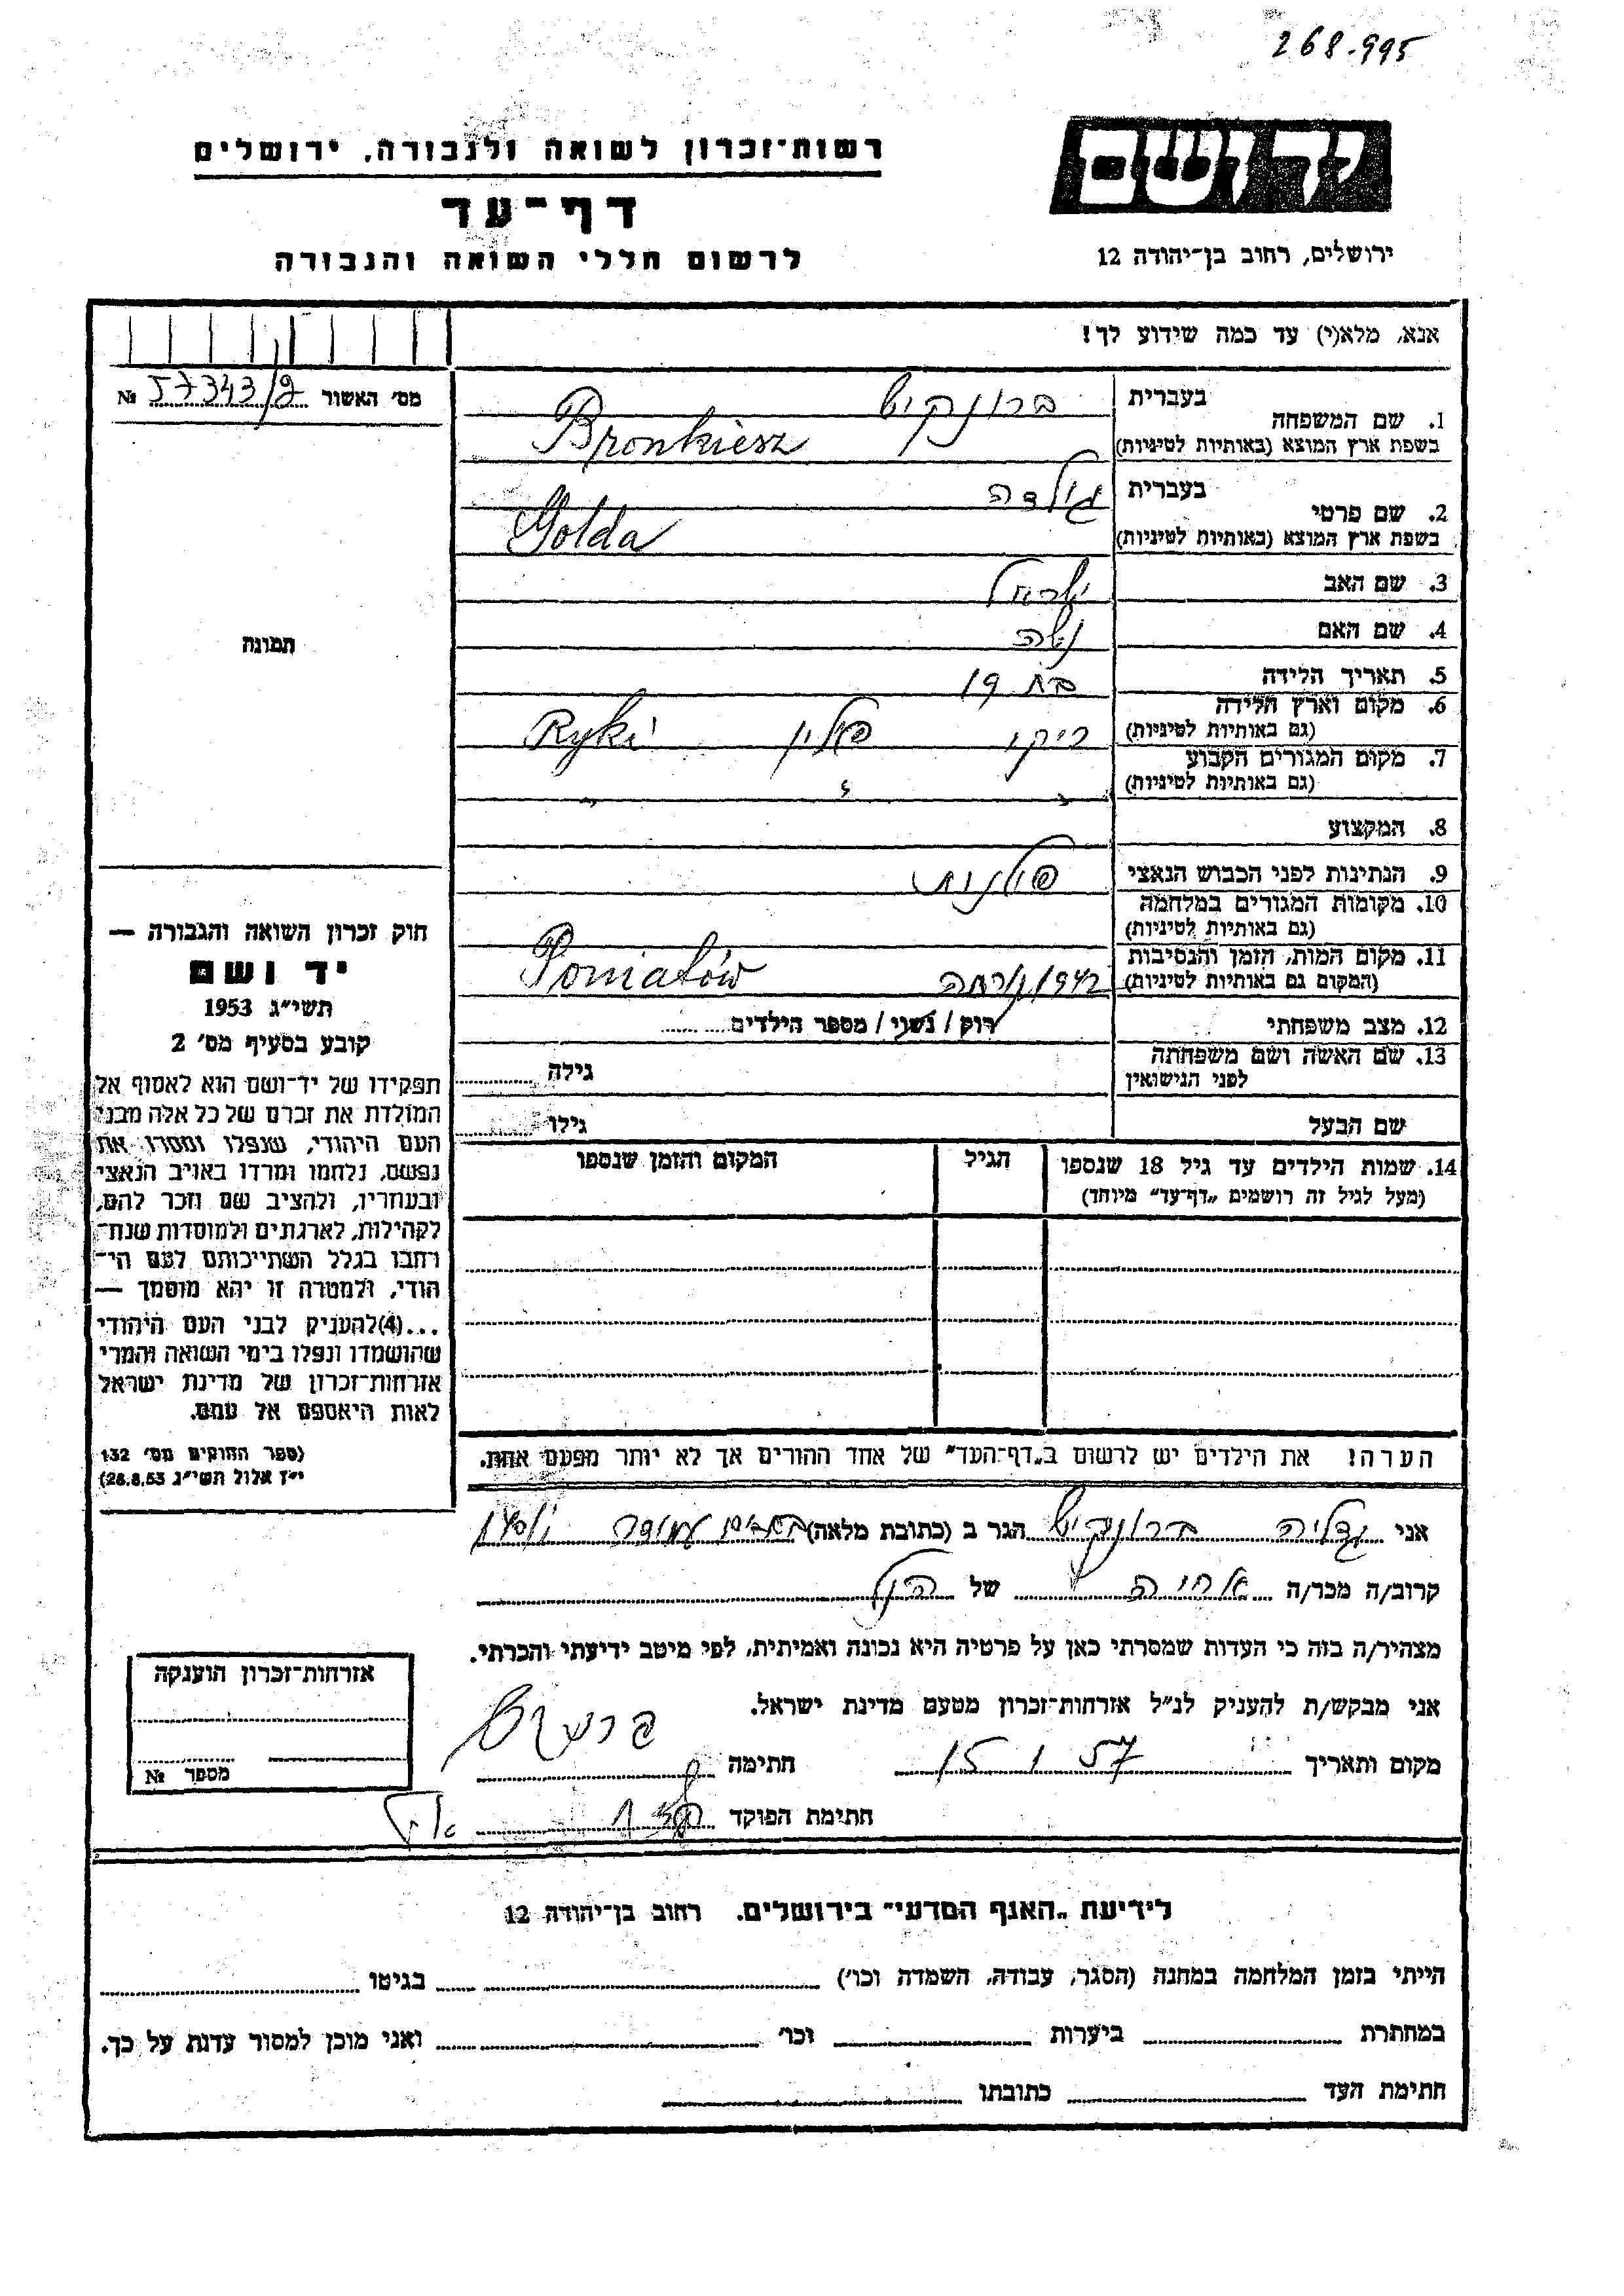 268.995
רשות־זכרון לשואה ולגבורה, ירושלים
דף־עד
לרשום חללי השואה והגבורה
יד ושם
ירושלים, רחוב בן־יהודה 12
אנא, מלא(י) עד כמה שידוע לך!
מס׳ האשור 57343/9 №
תמונה
בעברית ברונקיש
1. שם המשפחה
בשפת ארץ המוצא (באותיות לטיניות) Bronkiesz
בעברית גולדה
2. שם פרטי
בשפת ארץ המוצא (באותיות לטיניות) Golda
3. שם האב
4. שם האם
5. תאריך הלידה בת 19
6. מקום וארץ הלידה
(גם באותיות לטיניות) ריקי פולין Ryki
7. מקום המגורים הקבוע
(גם באותיות לטיניות) " " "
8. המקצוע
9. הנתינות לפני הכבוש הנאצי פולנית
10. מקומות המגורים במלחמה
(גם באותיות לטיניות)
11. מקום המות, הזמן והנסיבות
(המקום גם באותיות לטיניות) 1942 Poniatów
12. מצב משפחתי רוק / נשוי / מספר הילדים
13. שם האשה ושם משפחתה
לפני הנישואין גילה
שם הבעל גילו
14. שמות הילדים עד גיל 18 שנספו הגיל המקום והזמן שנספו
(מעל לגיל זה רושמים „דף־עד״ מיוחד)
הערה! את הילדים יש לרשום ב„דף־העד״ של אחד ההורים אך לא יותר מפעם אחת.
חוק זכרון השואה והגבורה —
יד ושם
תשי״ג 1953
קובע בסעיף מס׳ 2
תפקידו של יד־ושם הוא לאסוף אל
המולדת את זכרם של כל אלה מבני
העם היהודי, שנפלו ומסרו את
נפשם, נלחמו ומרדו באויב הנאצי
ובעוזריו, ולהציב שם וזכר להם,
לקהילות, לארגונים ולמוסדות שנח־
רבו בגלל השתייכותם לעם הי־
הודי, ולמטרה זו יהא מוסמך —
...(4)להעניק לבני העם היהודי
שהושמדו ונפלו בימי השואה והמרי
אזרחות־זכרון של מדינת ישראל
לאות היאספם אל עמם.
(ספר החוקים מס׳ 132
י״ז אלול תשי״ג 28.8.53)
אני גדליה ברונקיש הגר ב (כתובת מלאה)
קרוב/ה מכר/ה אחיה של הנ״ל
מצהיר/ה בזה כי העדות שמסרתי כאן על פרטיה היא נכונה ואמיתית, לפי מיטב ידיעתי והכרתי.
אני מבקש/ת להעניק לנ״ל אזרחות־זכרון מטעם מדינת ישראל.
מקום ותאריך 15 1 57 חתימה
חתימת הפוקד
אזרחות־זכרון הוענקה
מספר №
לידיעת „האגף המדעי״ בירושלים. רחוב בן־יהודה 12
הייתי בזמן המלחמה במחנה (הסגר, עבודה, השמדה וכו׳) בגיטו
במחתרת ביערות וכו׳ ואני מוכן למסור עדות על כך.
חתימת העד כתובתו